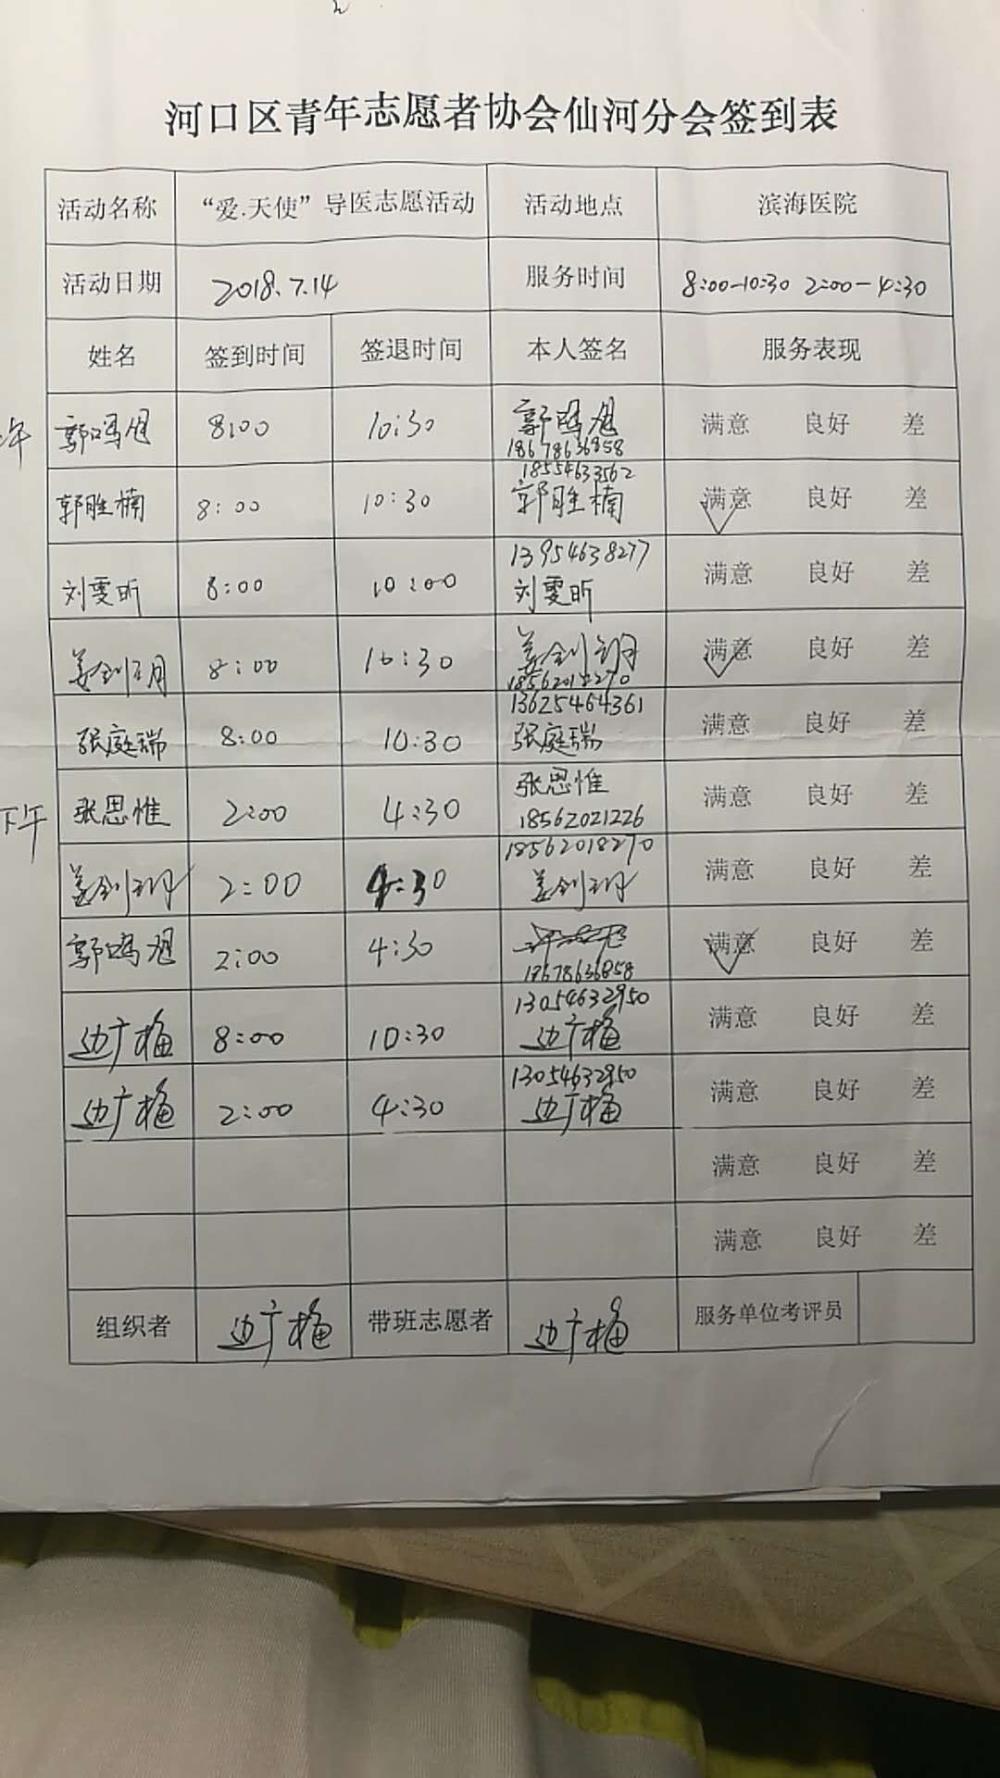 河口区青年志愿者协会仙河分会签到表
活动名称 “爱.天使”导医志愿活动 活动地点 滨海医院
活动日期 2018.7.14 服务时间 8:00-10:30 2:00-4:30
姓名 签到时间 签退时间 本人签名 服务表现
午 郭鸣旭 8:00 10:30 郭鸣旭 满意 良好 差
18678636858
18554633562
郭胜楠 8:00 10:30 郭胜楠 满意 良好 差
13954638277
刘雯昕 8:00 10:00 刘雯昕 满意 良好 差
姜钊玥 8:00 10:30 姜钊玥 满意 良好 差
18562018270
13625464361
张庭瑞 8:00 10:30 张庭瑞 满意 良好 差
下午 张思惟 2:00 4:30 张思惟 满意 良好 差
18562021226
18562018270
姜钊玥 2:00 4:30 姜钊玥 满意 良好 差
郭鸣旭 2:00 4:30 满意 良好 差
18678636858
13054632950
边广梅 8:00 10:30 边广梅 满意 良好 差
13054632950
边广梅 2:00 4:30 边广梅 满意 良好 差
满意 良好 差
满意 良好 差
组织者 边广梅 带班志愿者 边广梅 服务单位考评员